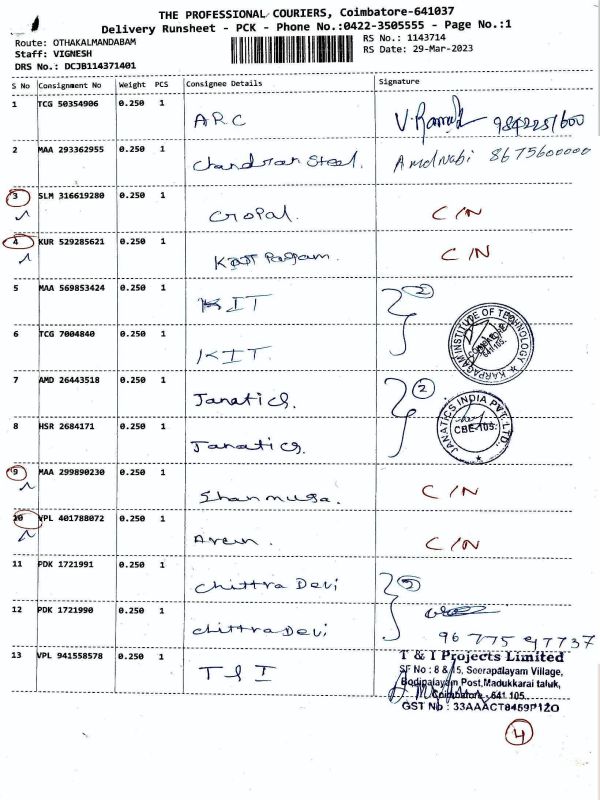 THE PROFESSIONAL COURIERS, Coimbatore-641037
Delivery Runsheet - PCK - Phone No.:0422-3505555 - Page No.:1
Route: OTHAKALMANDABAM
RS No.: 1143714
Staff: VIGNESH
RS Date: 29-Mar-2023
DRS No.: DCJB114371401
S No Consignment No Weight PCS Consignee Details Signature
1 TCG 50354906 0.250 1 ARC
2 MAA 293362955 0.250 1 Chandran Steel. 8675600000
3 SLM 316619280 0.250 1 Gopal. C/N
4 KUR 529285621 0.250 1 C/N
5 MAA 569853424 0.250 1 KIT 2
6 TCG 7004840 0.250 1 KIT.
KARPAGAM INSTITUTE OF TECHNOLOGY
641 105.
7 AMD 26443518 0.250 1 Janatics. 2
8 HSR 2684171 0.250 1 Janatics.
JANATICS INDIA PVT. LTD.,
CBE-105.
9 MAA 299890230 0.250 1 Shanmuga. C/N
10 VPL 401788072 0.250 1 C/N
11 PDK 1721991 0.250 1 Chittra Devi
12 PDK 1721990 0.250 1 chittra Devi
13 VPL 941558578 0.250 1 T & I
T & I Projects Limited
SF No : 8 & 15, Seerapalayam Village,
Bodipalayam Post, Madukkarai taluk,
Coimbatore - 641 105.
GST No : 33AAACT8459P1ZO
4